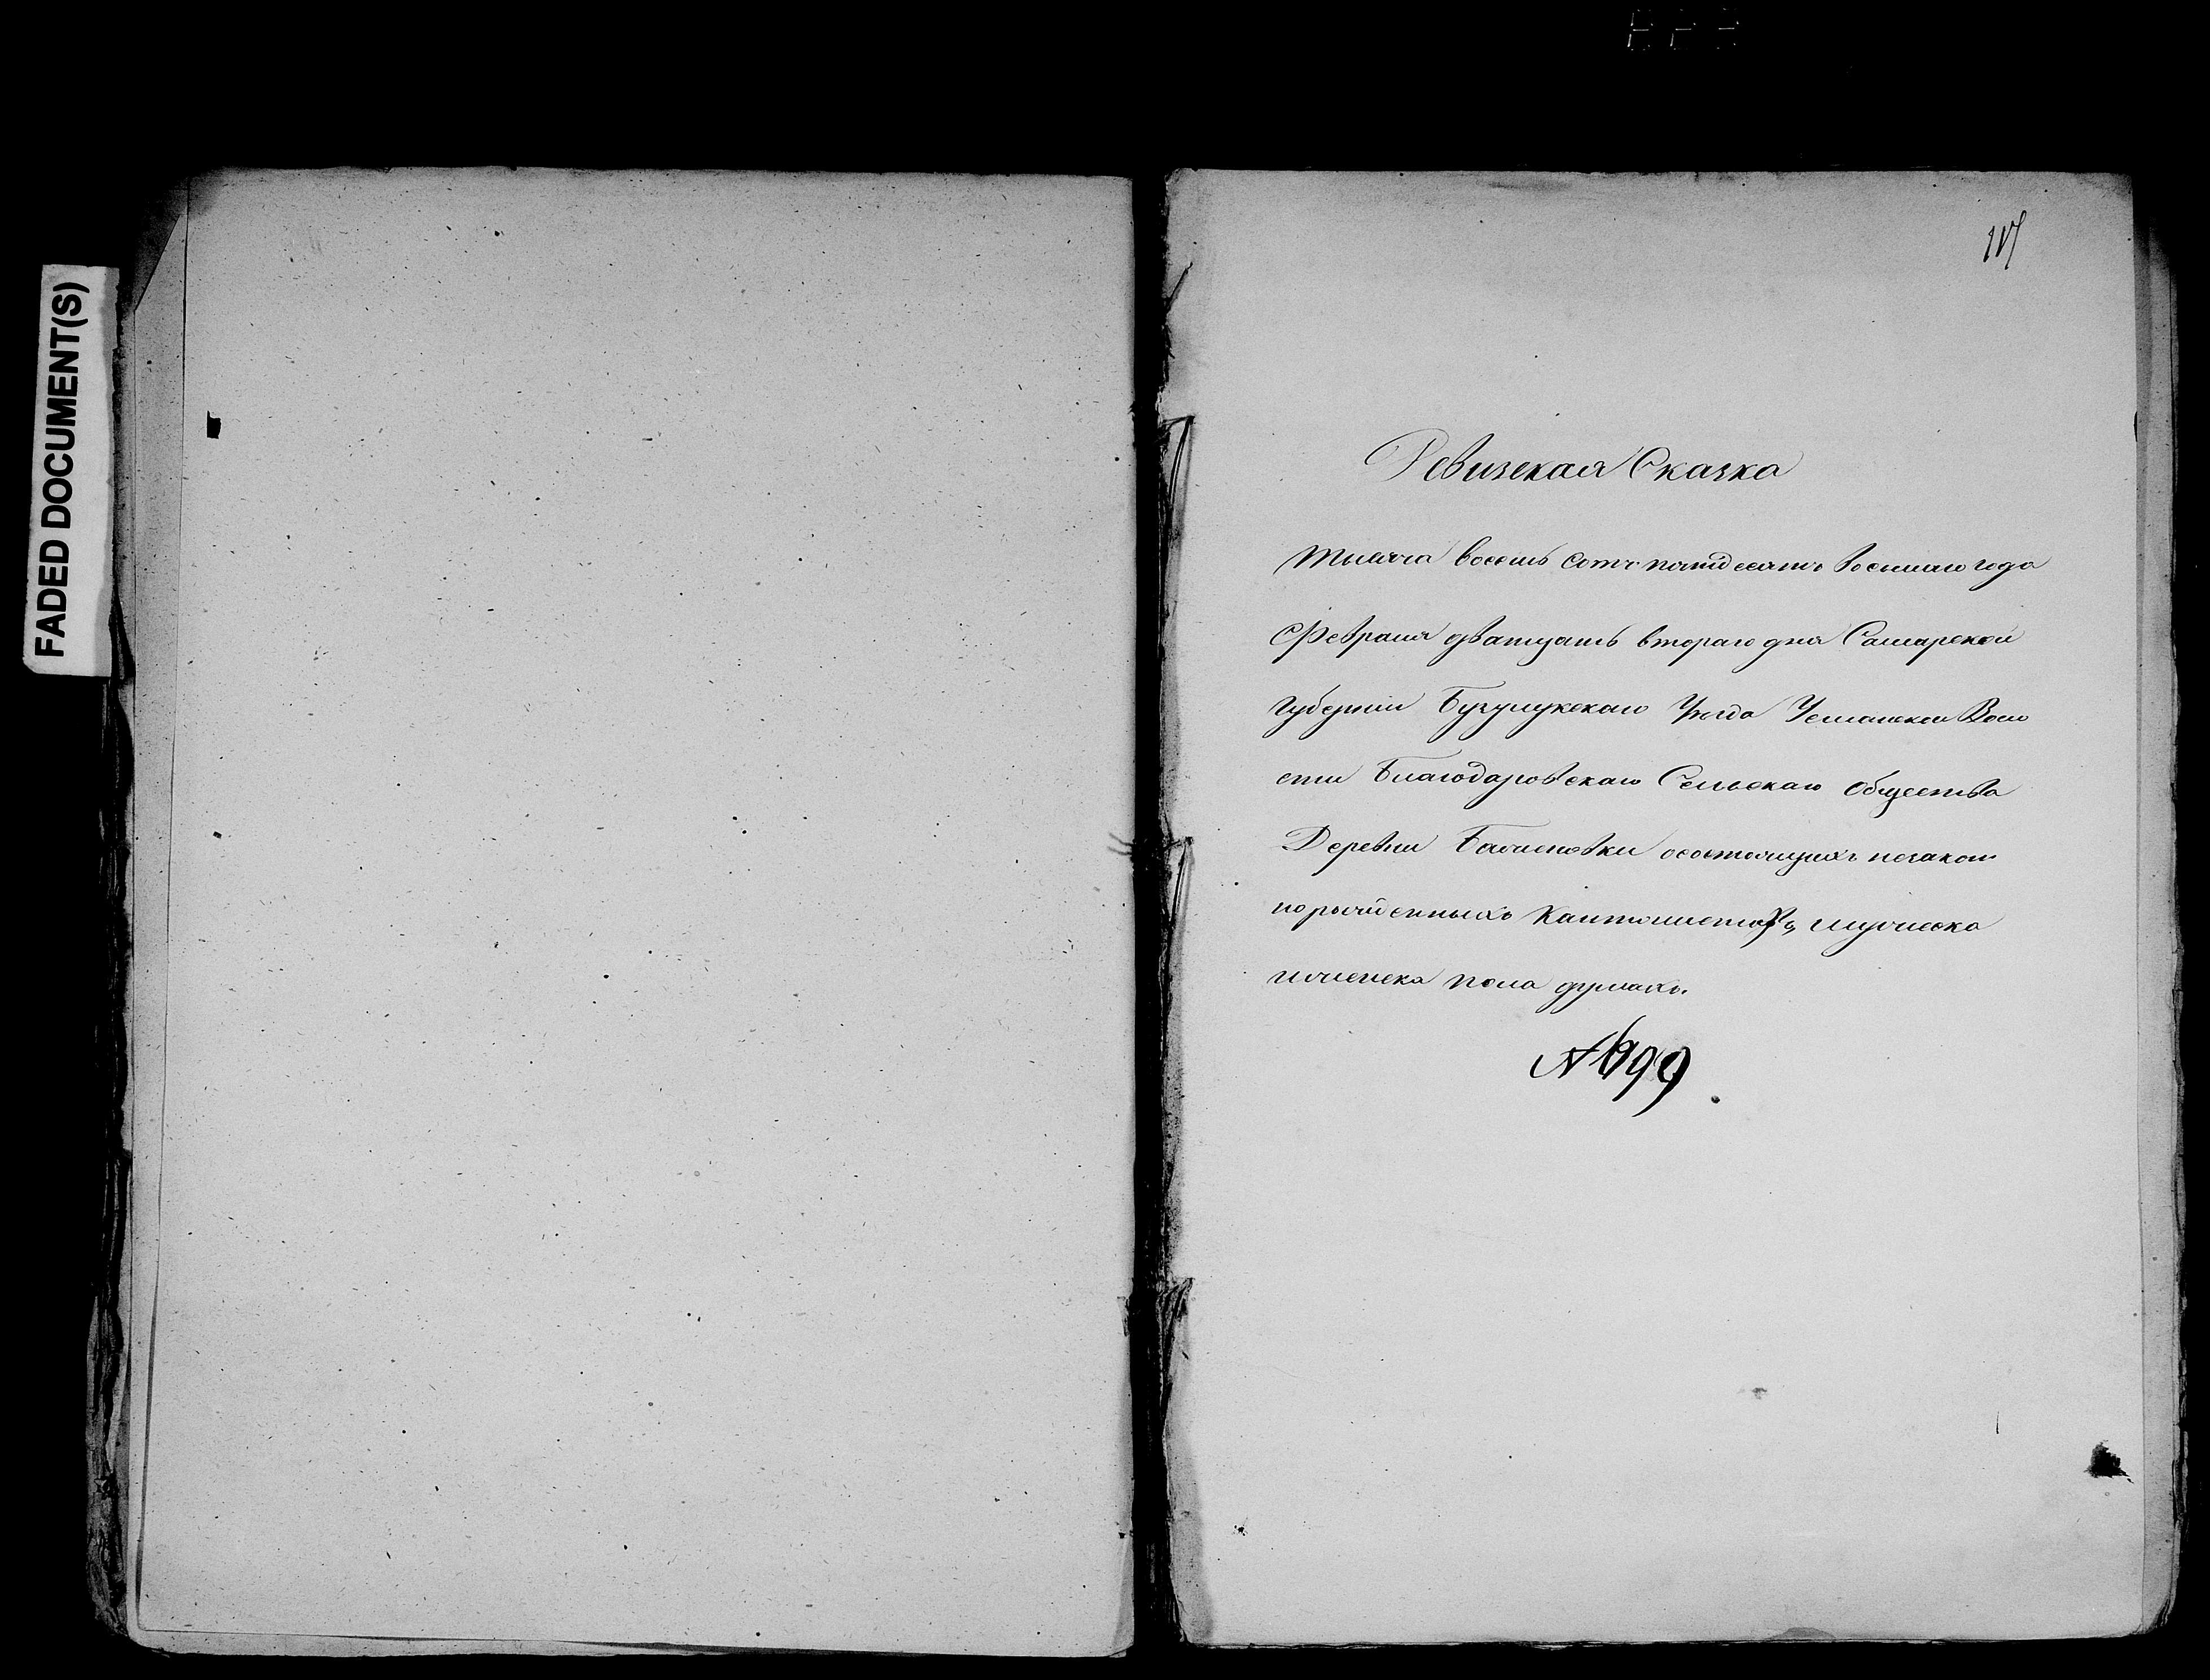 FADED DOCUMENT(S)
Ревизская Сказка
тысяча восемь сотъ пятидесятъ восьмаго года
Февраля дватцать втораго дня Самарской
Губерніи Бузулукскаго Уѣзда Усманской Воло
сти Благодаровскаго Сельскаго Общества
Деревни осостоящихъ незакон
норожденныхъ Кантонистовъ, мужеска
иженска пола душахъ.
№ 99